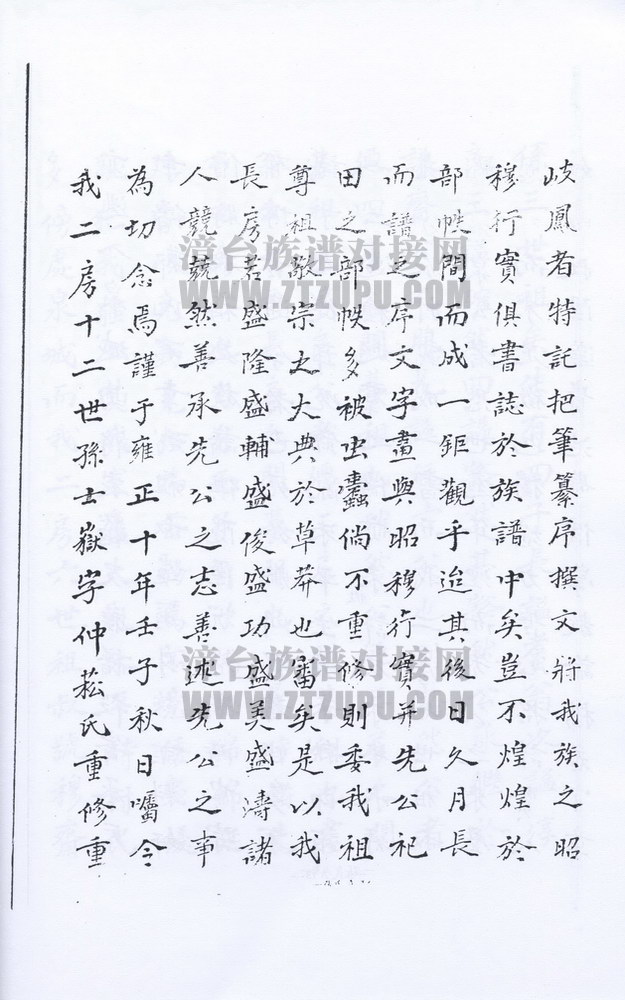 岐鳳者特託把筆纂序撰文將我族之昭
穆行實俱書誌於族譜中矣豈不煌煌於
部帙間而成一鉅觀乎迨其後日久月長
而譜之序文字畫與昭穆行實并先公祀
田之部帙多被虫蠹倘不重修則委我祖
尊祖敬宗之大典於草莽也審矣是以我
長房君盛隆盛輔盛俊盛功盛美盛濤諸
人兢兢然善承先公之志善述先公之事
為切念焉謹于雍正十年壬子秋日囑令
我二房十二世孫士嶽字仲菘氏重修重
漳台族谱对接网
WWW.ZTZUPU.COM
漳台族谱对接网
WWW.ZTZUPU.COM